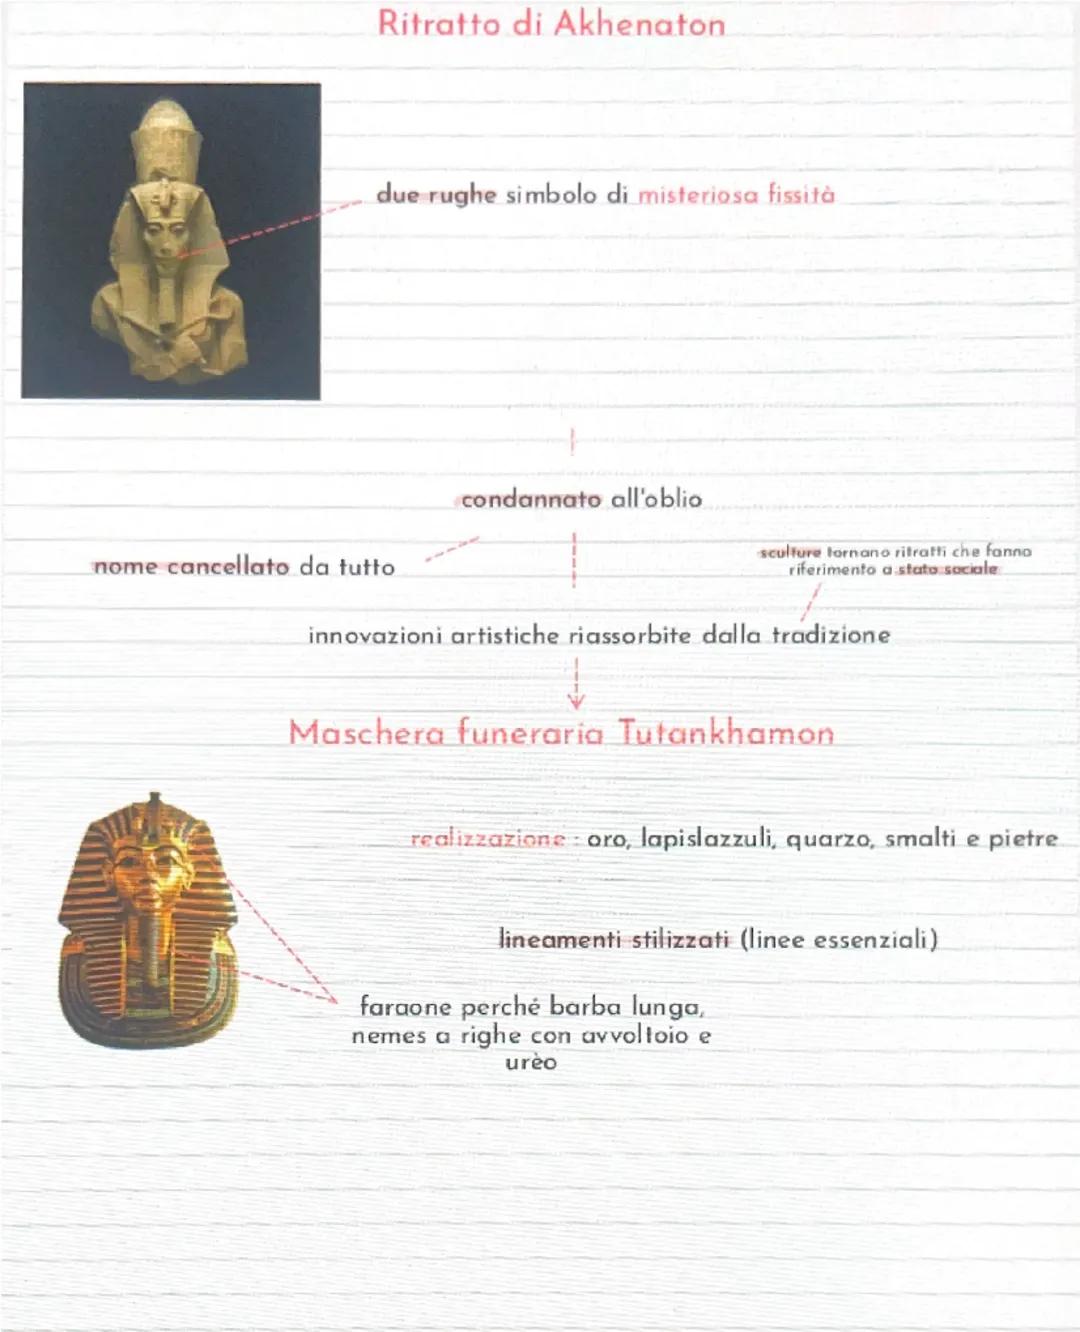 Ritratto di Akhenaton
due rughe simbolo di misteriosa fissità
condannato all'oblio
nome cancellato da tutto
sculture tornano ritratti che fanno
riferimento a stato sociale
innovazioni artistiche riassorbite dalla tradizione
Maschera funeraria Tutankhamon
realizzazione : oro, lapislazzuli, quarzo, smalti e pietre
lineamenti stilizzati (linee essenziali)
faraone perché barba lunga,
nemes a righe con avvoltoio e
urèo